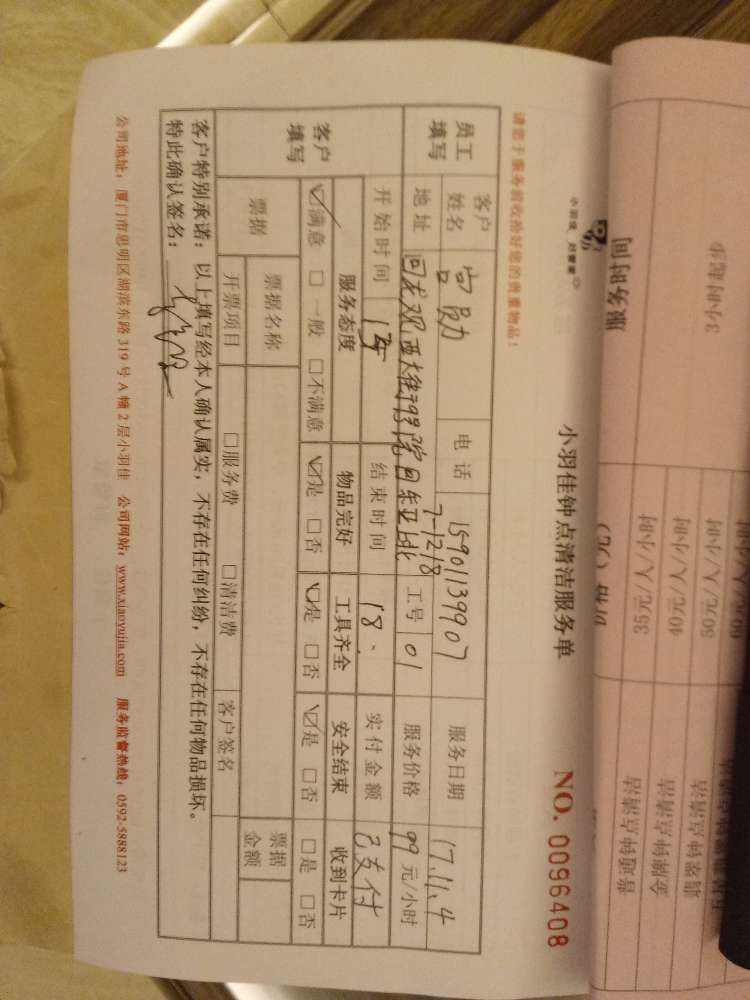 小羽佳 好管家
小羽佳钟点清洁服务单
NO. 0096408
请您于服务前收拾好您的贵重物品！
员工填写 客户姓名 电话 15901139907 服务日期 17.11.4
地址 回龙观西大街 7-1218 工号 01 服务价格 99 元/小时
开始时间 结束时间 18. 实付金额 已支付
客户填写 服务态度 物品完好 工具齐全 安全结束 收到卡片
☑满意 □一般 □不满意 ☑是 □否 ☑是 □否 ☑是 □否 □是 □否
票据 票据名称 票据金额
开票项目 □服务费 □清洁费 客户签名
客户特别承诺：以上填写经本人确认属实，不存在任何纠纷，不存在任何物品损坏。
特此确认签名：
公司地址：厦门市思明区湖滨东路 319 号 A 幢 2 层小羽佳 公司网站：www.xiaoyujia.com 服务监督热线：0592-5888123
服务时间
3小时起步
35元/人/小时
40元/人/小时
50元/人/小时